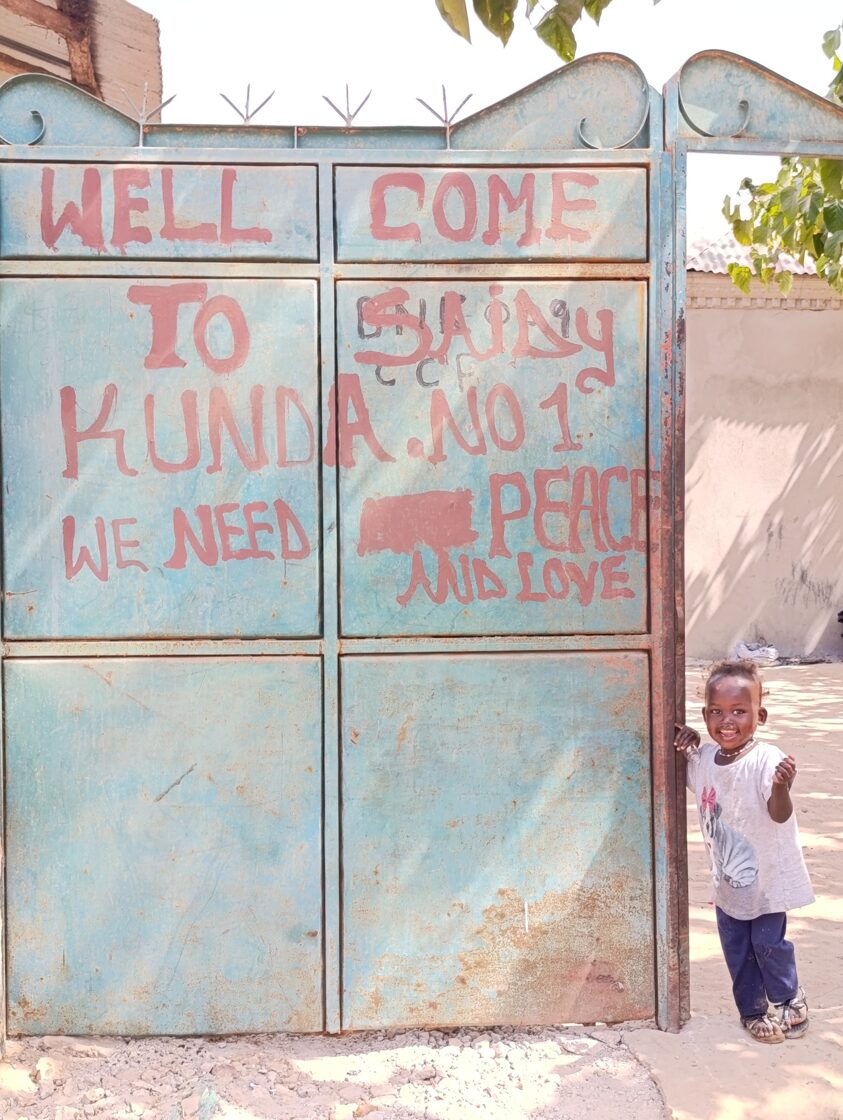 WELL COME
TO SAIDY
KUNDA .NO 1
WE NEED PEACE
AND LOVE